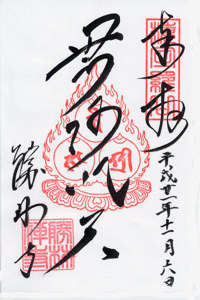 奉拝
平成廿一年十一月六日
毘沙門天
勝林寺